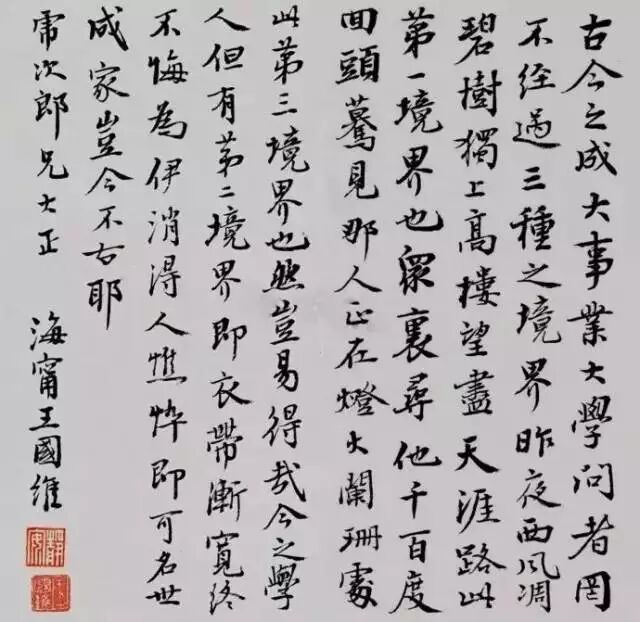 古今之成大事業大學問者罔
不经過三種之境界昨夜西风凋
碧樹獨上高樓望盡天涯路此
第一境界也眾裏尋他千百度
回頭驀見那人正在燈火闌珊處
此第三境界也然豈易得哉今之學
人但有第二境界即衣帶漸寬终
不悔為伊消得人憔悴即可名世
成家豈今不古耶
常次郎兄大正
海甯王國維
靜安